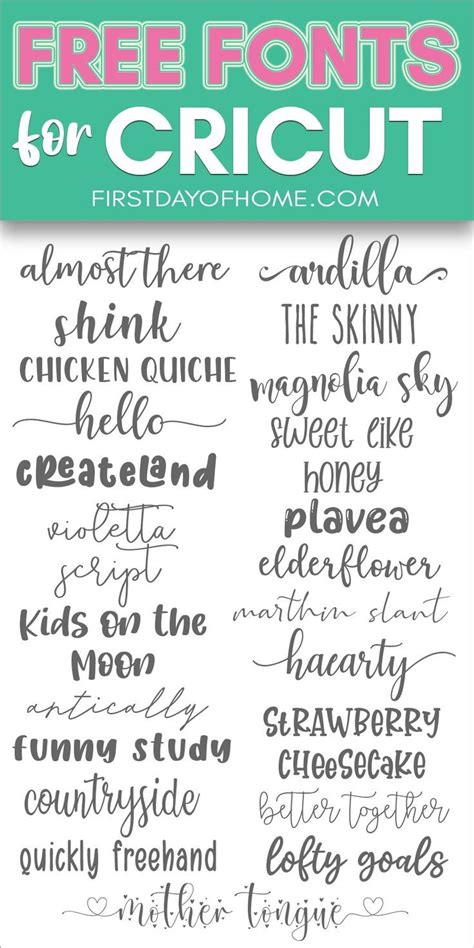 FREE FONTS
for CRICUT
FIRSTDAYOFHOME.COM
almost there
shink
CHICKEN QUICHE
hello
createland
violetta
script
Kids on the
Moon
antically
funny study
countryside
quickly freehand
ardilla
THE SKINNY
magnolia sky
sweet like
honey
plavea
elderflower
marthin slant
haearty
STRAWBERRY
CHEESECAKE
better together
lofty goals
mother tongue